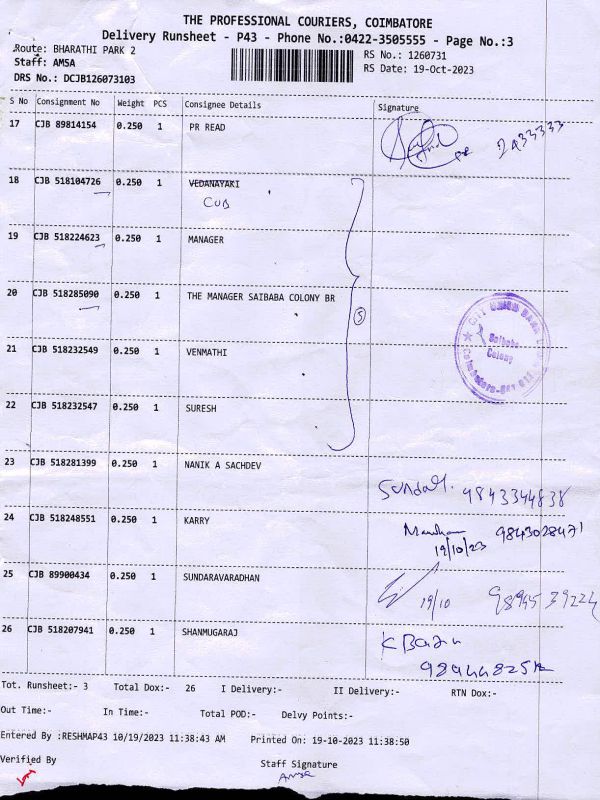 THE PROFESSIONAL COURIERS, COIMBATORE
Delivery Runsheet - P43 - Phone No.:0422-3505555 - Page No.:3
Route: BHARATHI PARK 2
RS No.: 1260731
Staff: AMSA
RS Date: 19-Oct-2023
DRS No.: DCJB126073103
S No Consignment No Weight PCS Consignee Details Signature
17 CJB 89814154 0.250 1 PR READ
2433333
18 CJB 518104726 0.250 1 VEDANAYAKI
CUB
19 CJB 518224623 0.250 1 MANAGER
20 CJB 518285090 0.250 1 THE MANAGER SAIBABA COLONY BR
5
CITY UNION BANK
Saibaba
Colony
21 CJB 518232549 0.250 1 VENMATHI
22 CJB 518232547 0.250 1 SURESH
23 CJB 518281399 0.250 1 NANIK A SACHDEV
9843344838
24 CJB 518248551 0.250 1 KARRY
9843028471
19/10/23
25 CJB 89900434 0.250 1 SUNDARAVARADHAN
19/10
26 CJB 518207941 0.250 1 SHANMUGARAJ
K Babu
Tot. Runsheet:- 3 Total Dox:- 26 I Delivery:- II Delivery:- RTN Dox:-
Out Time:- In Time:- Total POD:- Delvy Points:-
Entered By :RESHMAP43 10/19/2023 11:38:43 AM Printed On: 19-10-2023 11:38:50
Verified By Staff Signature
Amsa